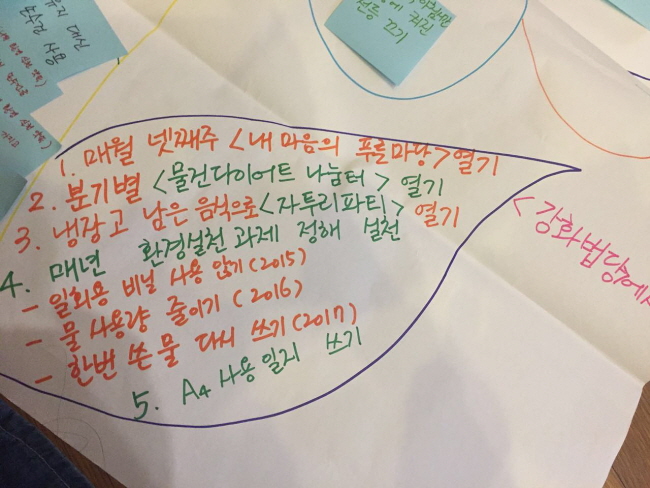 휴지 대신
손수건 사용
전등 끄기
1. 매월 넷째주 <내 마음의 푸른마당> 열기
2. 분기별 <물건다이어트 나눔터> 열기
3. 냉장고 남은 음식으로 <자투리파티> 열기
4. 매년 환경실천 과제 정해 실천
- 일회용 비닐 사용 않기 (2015)
- 물 사용량 줄이기 (2016)
- 한번 쓴 물 다시 쓰기 (2017)
5. A4 사용 일지 쓰기
<강화법당에서